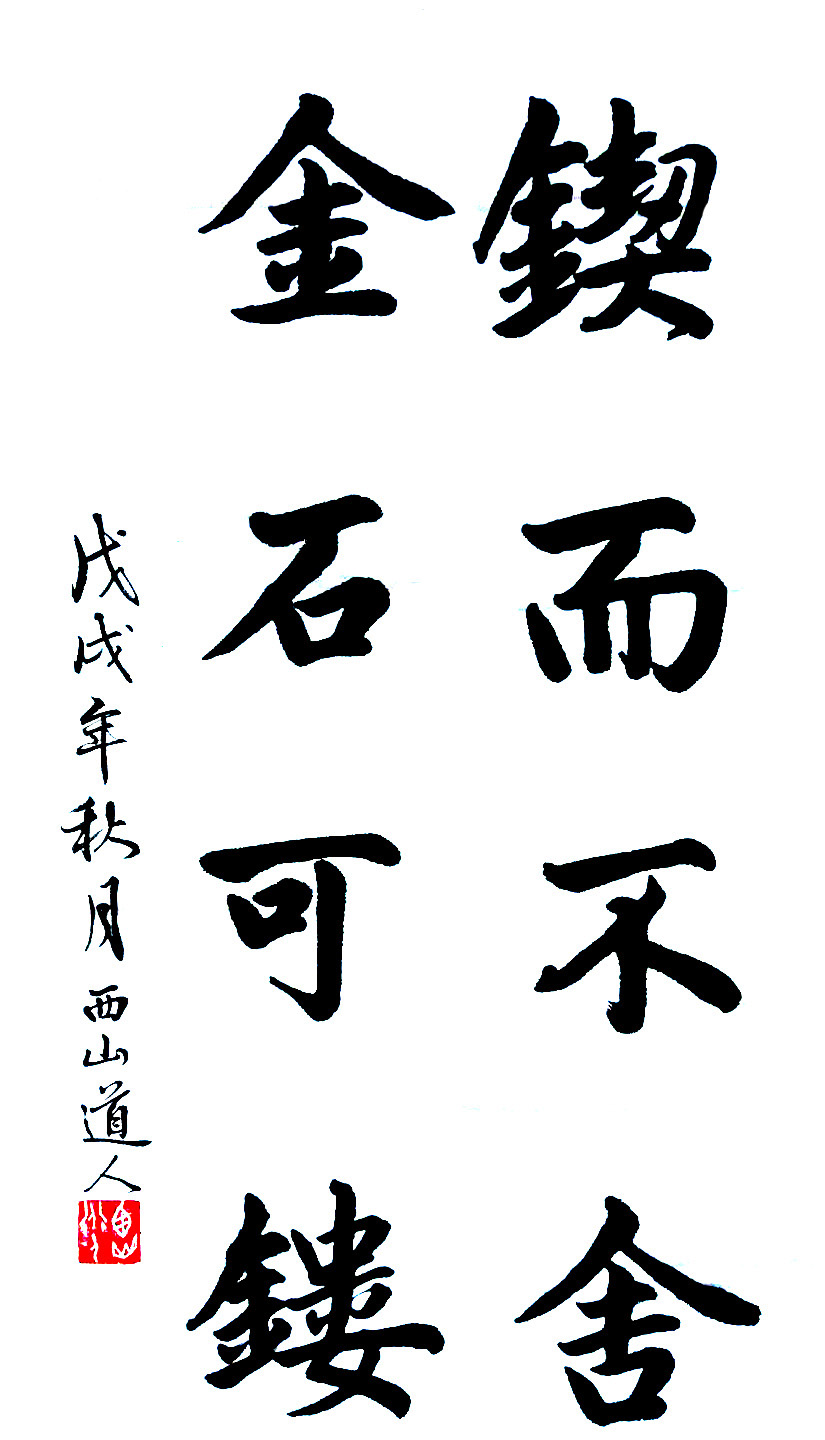 鍥而不舍
金石可鏤
戊戌年秋月西山道人